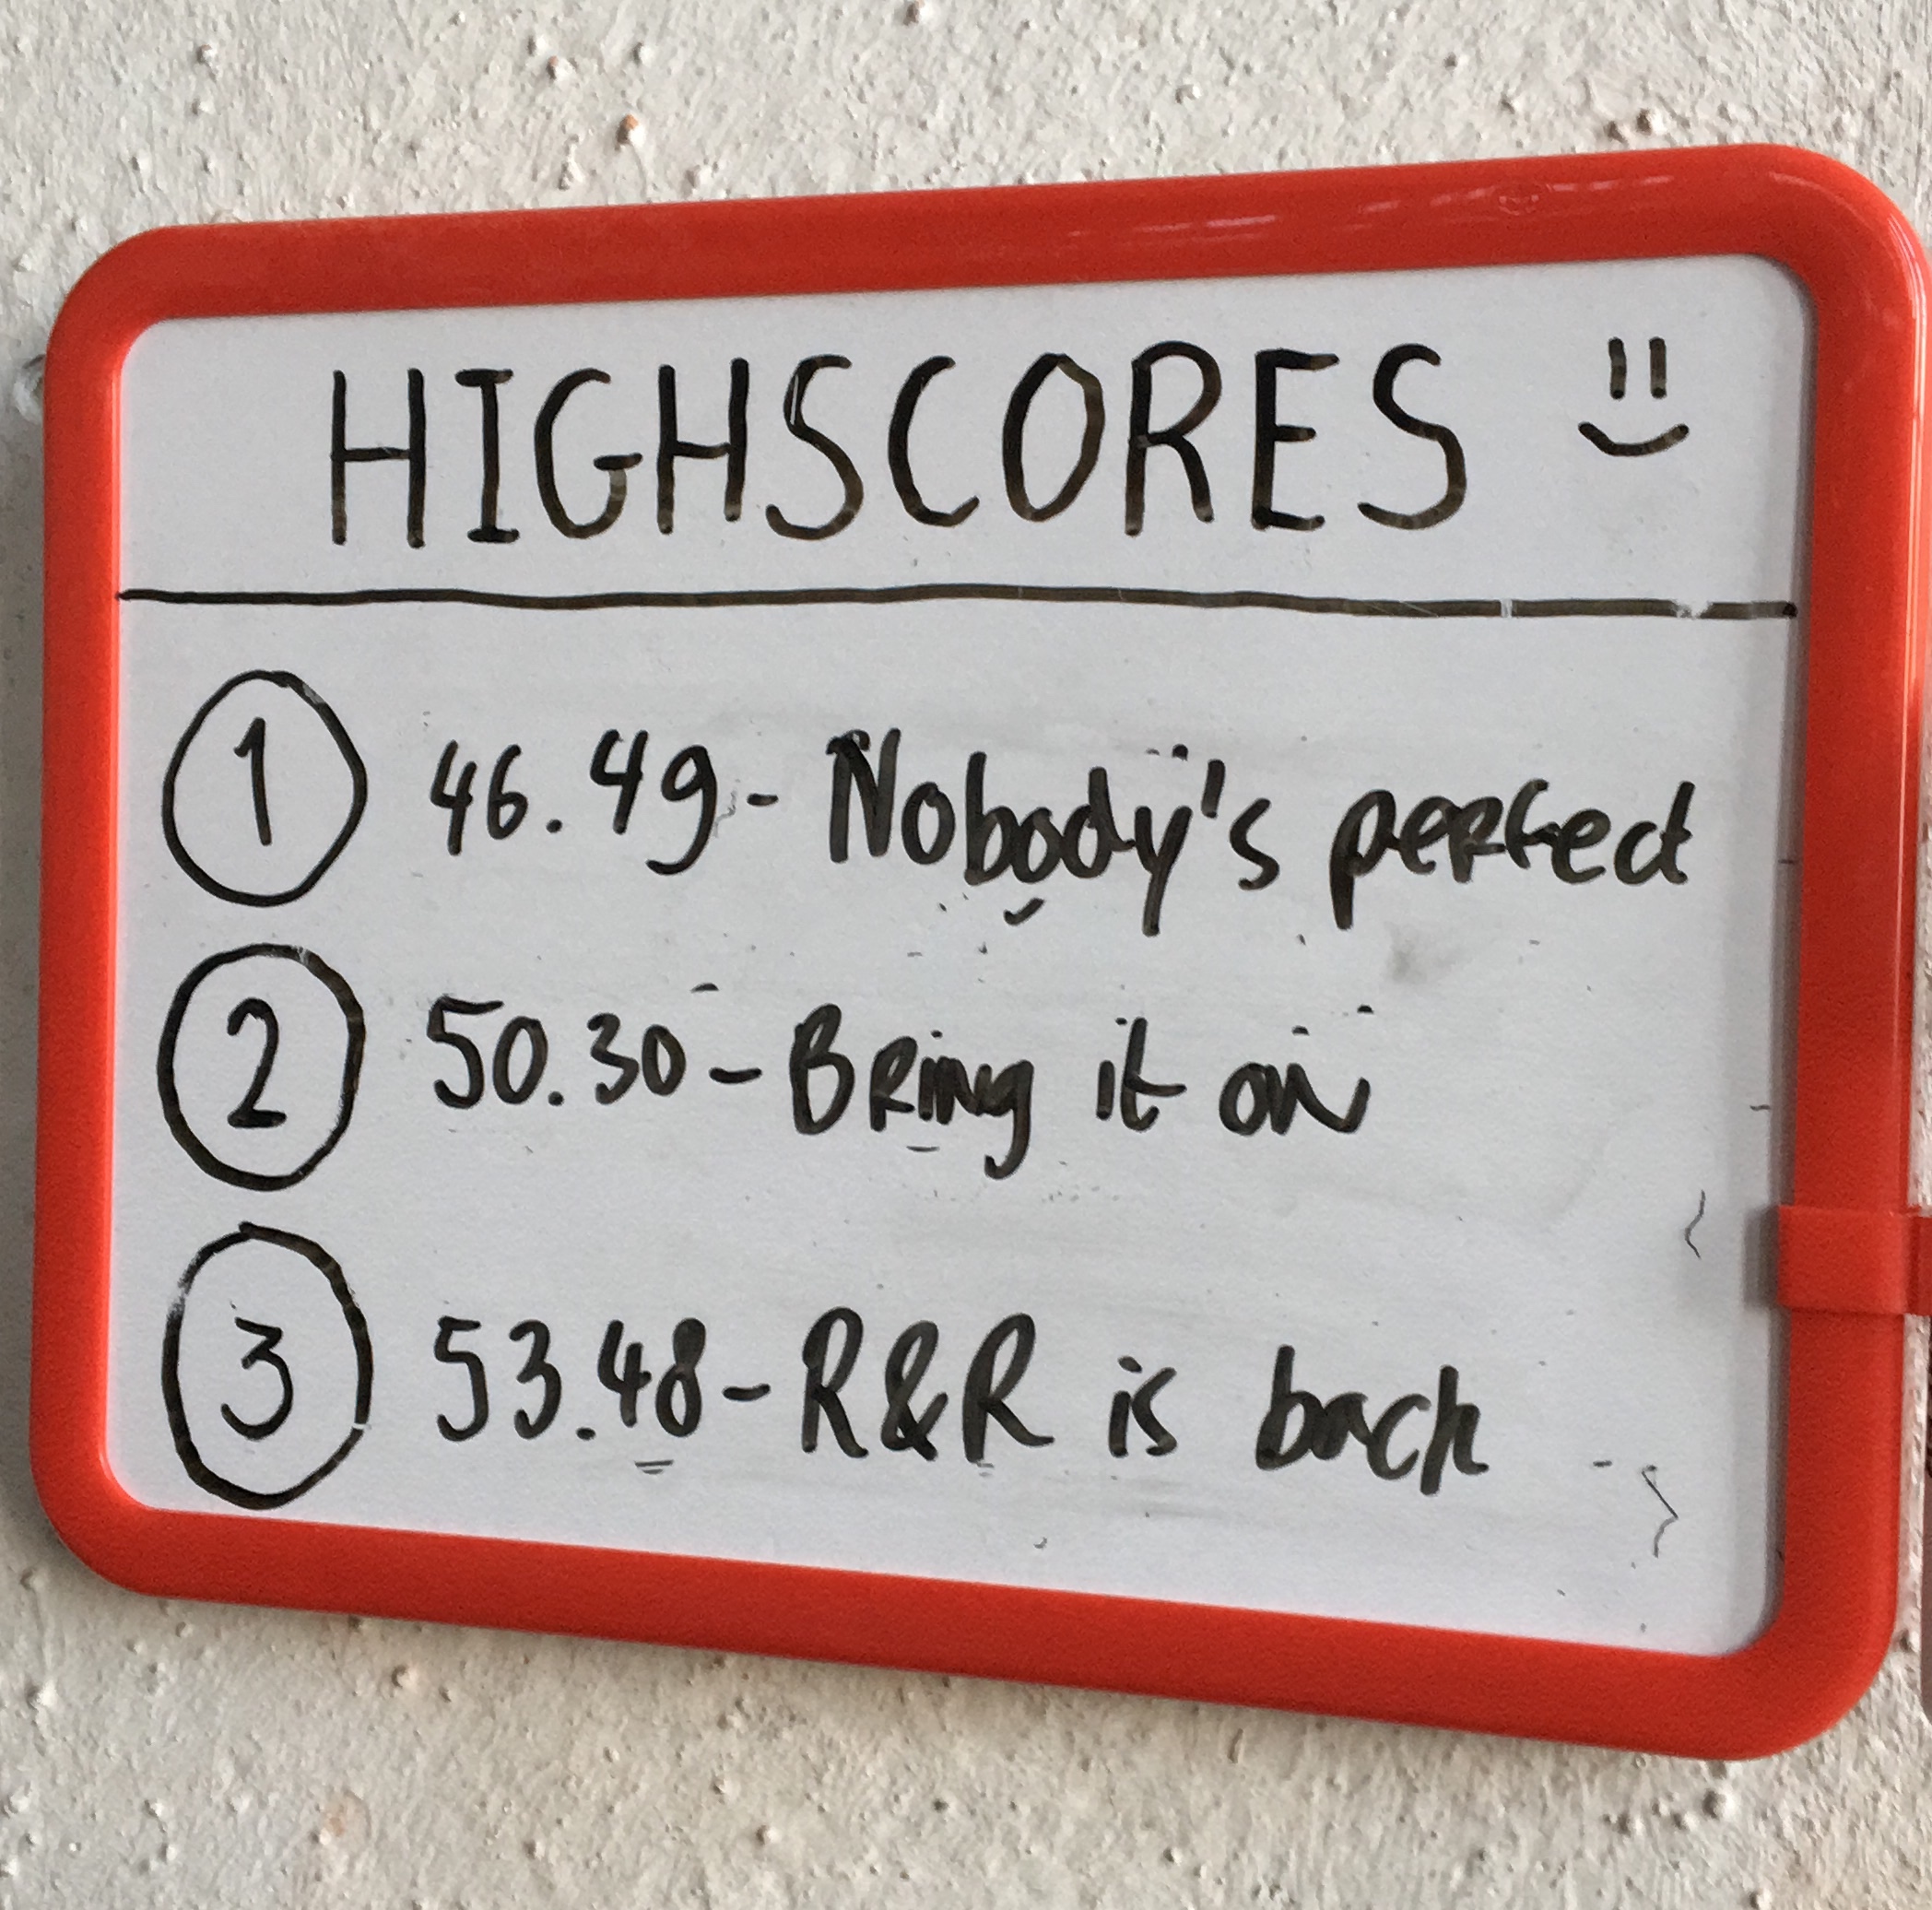 HIGHSCORES
1 46.49 - Nobody's perfect
2 50.30 - Bring it on
3 53.48 - R&R is back